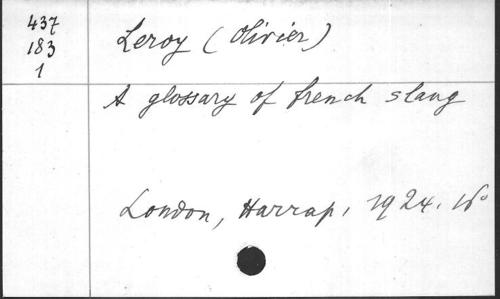 437
183
1
Leroy (Olivier)
A glossary of french slang
London, Harrap, 1924. 16°